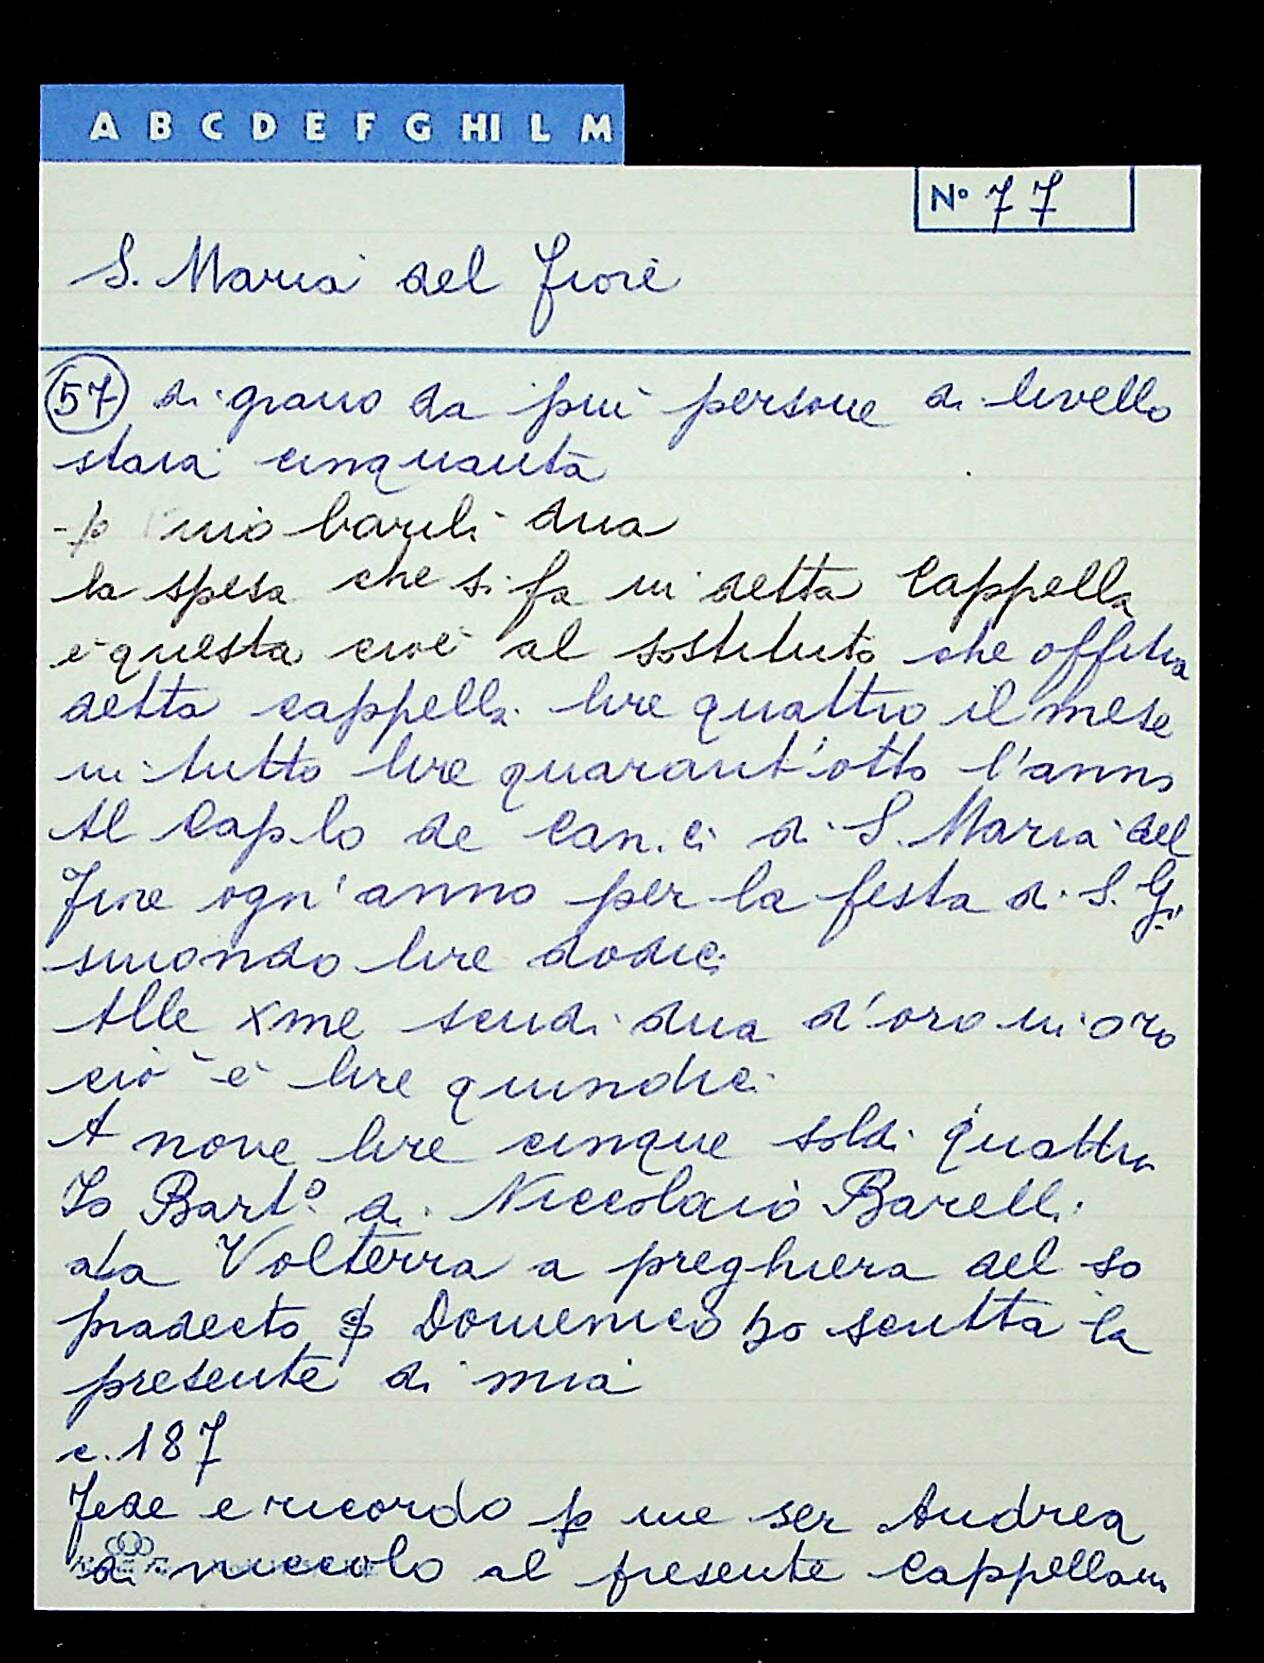 A B C D E F G HI L M
N° 77
S. Maria del Fiore
57 di grano da piu persone di livello
staia cinquanta
- p vino barili dua
la spesa che si fa in detta Cappella
è questa cioè al sostituto che offitia
detta cappella lire quattro il mese
in tutto lire quarant'otto l'anno
Al Cap.lo de Can.ci di S. Maria del
Fiore ogn'anno per la festa di S. Gi
smondo lire dodici
Alle xme scudi dua d'oro in oro
ciò è lire quindici
A nove lire cinque soldi quattro
Io Bart.o di Niccolaio Barelli
da Volterra a preghiera del so
pradecto Domenico ho scritta la
presente di mia
c. 187
Fede e ricordo p me ser Andrea
di niccolo al presente Cappellani